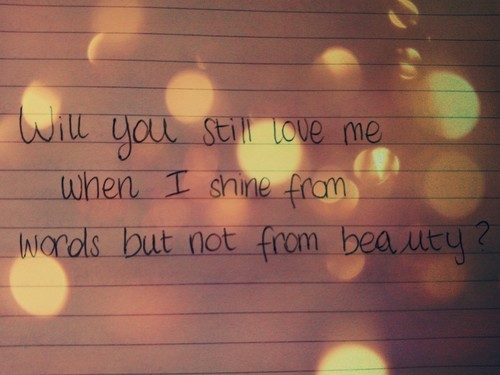 Will you still love me
when I shine from
words but not from beauty?